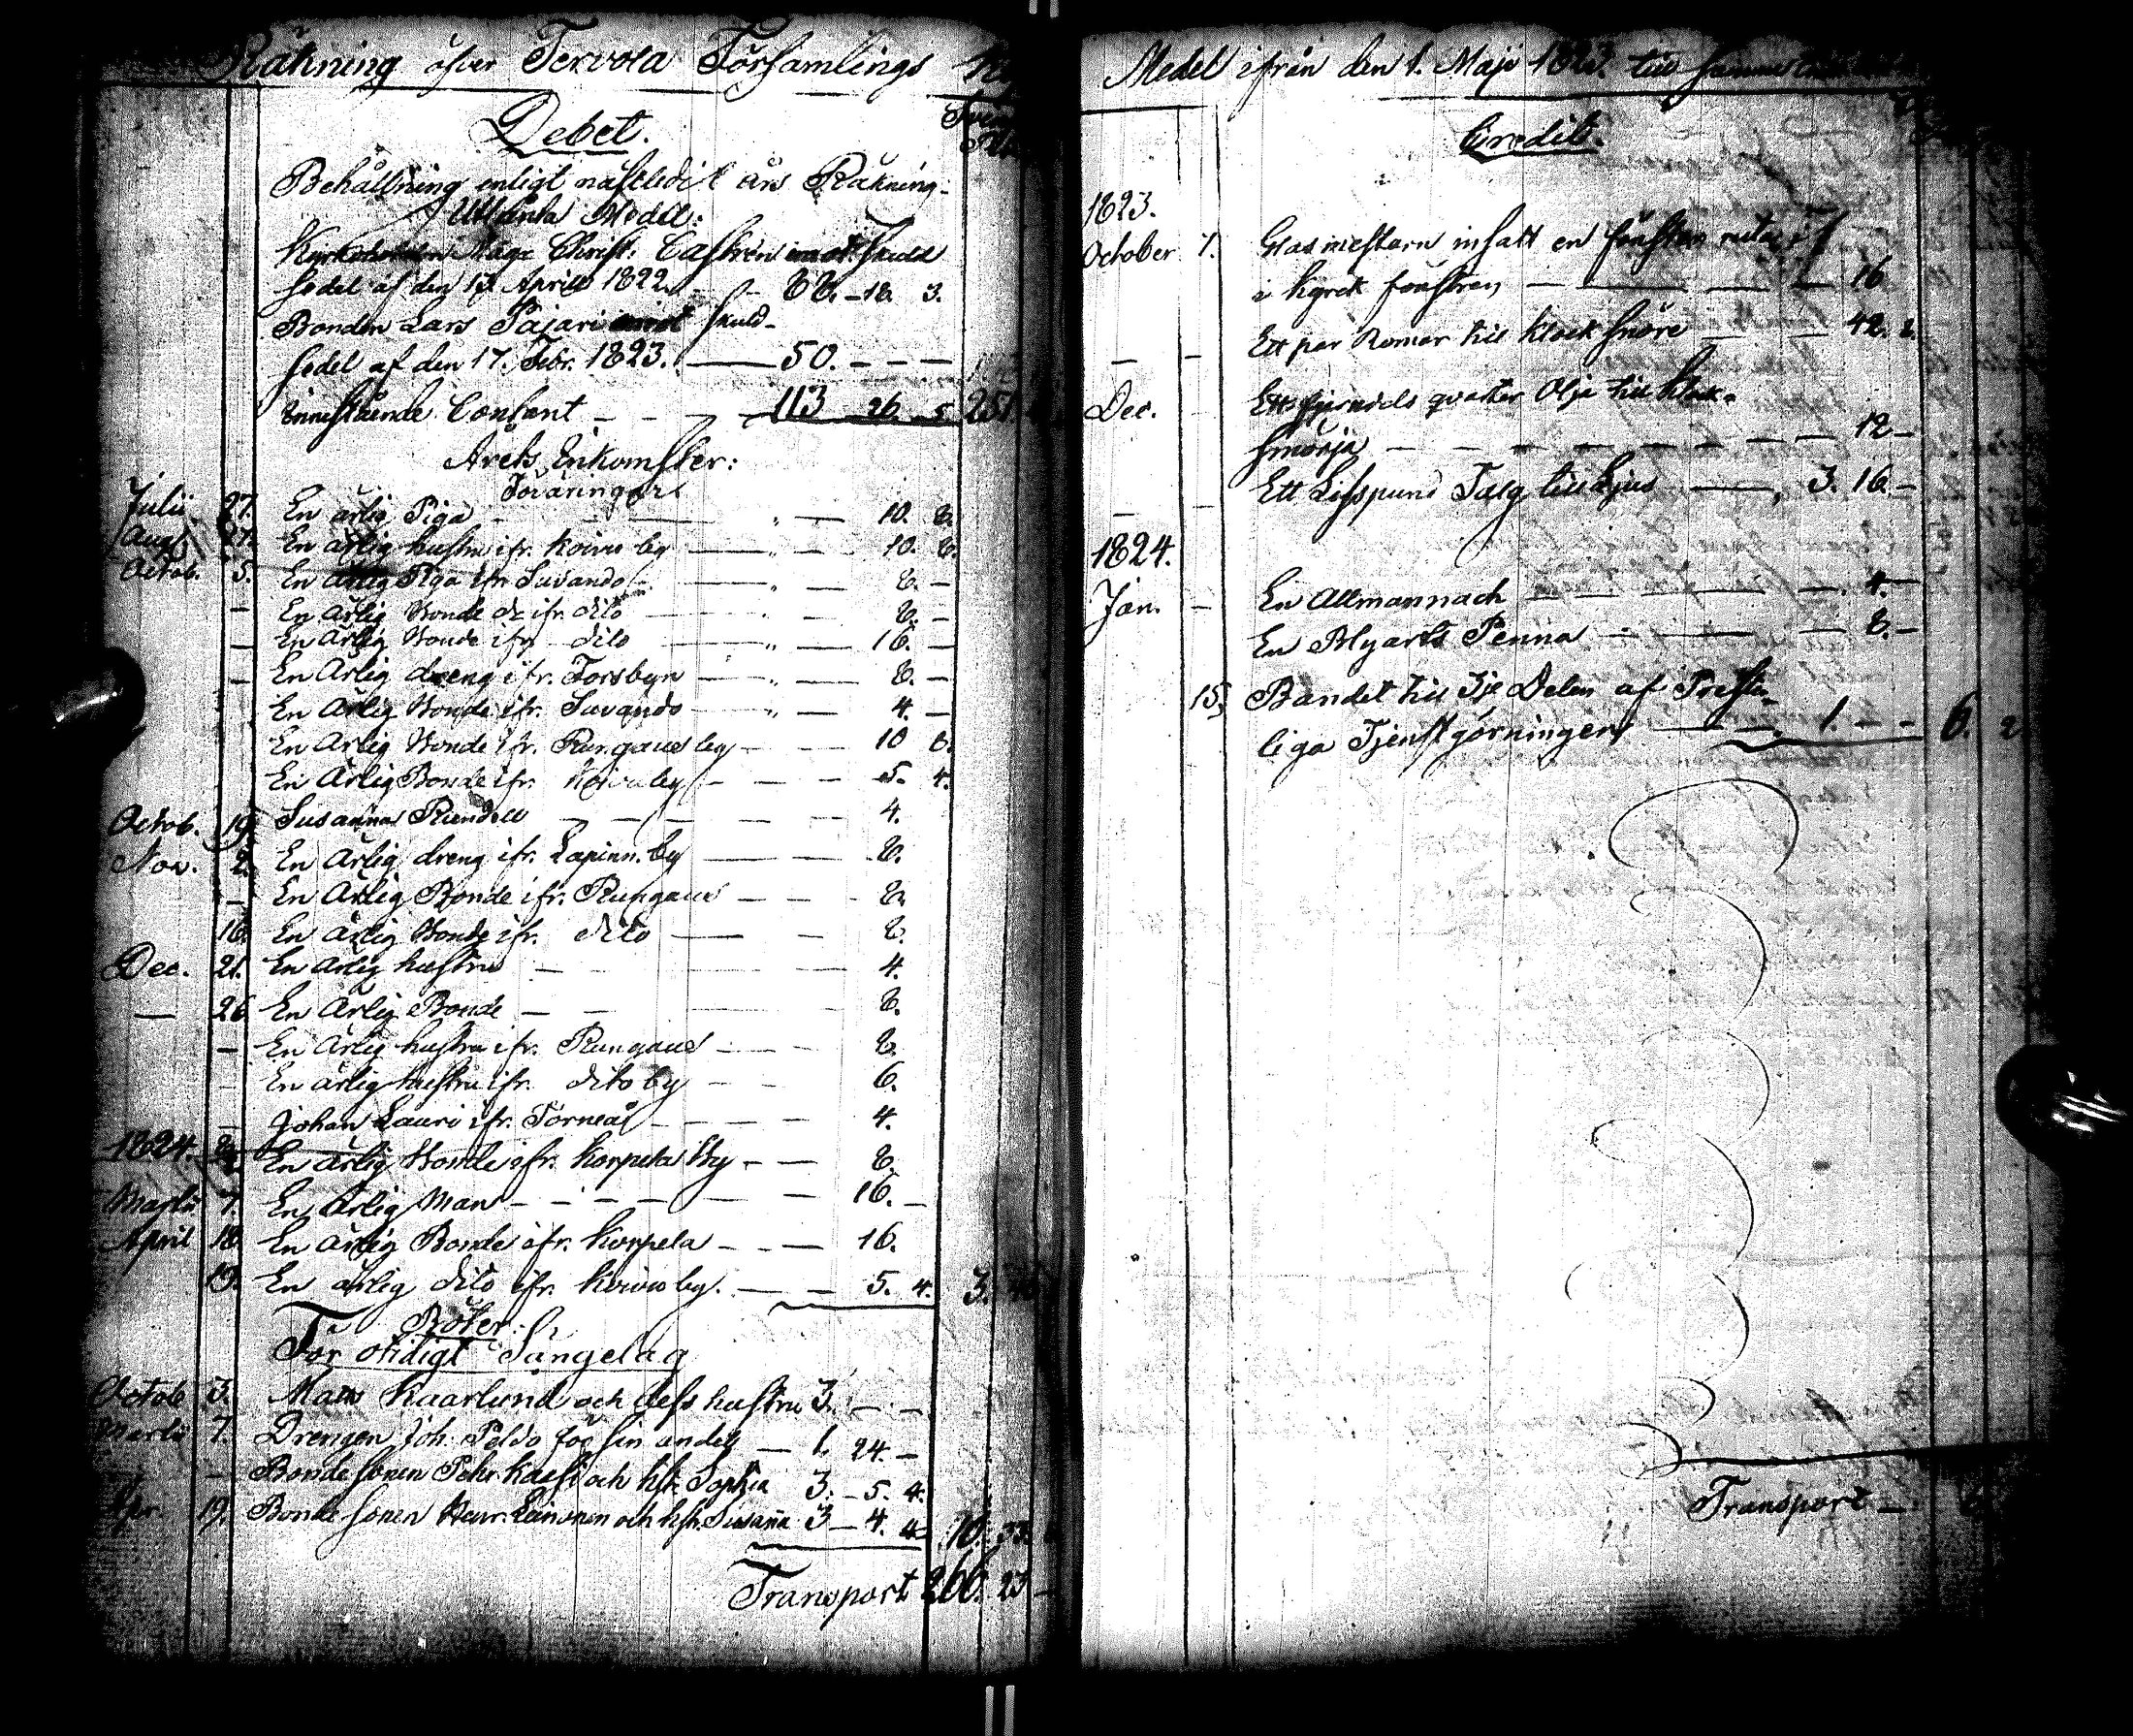 Räkning öfver Tervola Församlings
Debet.
Behållning enligt nästledit års Räkning.
Utlånta Medel:
Mag. Christ. Castrén imot skuld
sedel af den 13. Aprill 1822. 88. - 18. 3.
Bonden Lars Pajari imot skuld-
sedel af den 17. Febr. 1823. 50. - - -
Innestående Contant - - - 113 26. 5. 251.
Årets Inkomster:
Föräringar
Julii 27. En ärlig Piga - 10. 8.
Aug. 27. En ärlig hustru ifr. Koivu by 10. 8.
Octob. 5. En ärlig Piga ifr. Suvando 8. -
- En ärlig Bonde ifr. dito 8. -
- En ärlig Bonde ifr. dito 16. -
- En Ärlig dreng ifr. Torsbyn 8. -
En Ärlig Bonde ifr. Suvando 4. -
En Ärlig Bonde ifr. Rungaus by - 10 8.
En Ärlig Bonde ifr. Koivu by - 5. 4.
Octob. 19. Susanna Rundell - 4.
Nov. 2. En Ärlig dreng ifr. Lapinn. by 8.
- En Ärlig Bonde ifr. Rungaus - 8.
16. En ärlig Bonde ifr. dito 8.
Dec. 21. En Ärlig hustru - 4.
- 26. En Ärlig Bonde - 8.
- En Ärlig hustru ifr. Rungaus 8.
- En ärlig hustru ifr. dito by - 6.
- Johan Lauri ifr. Torneå - 4.
1824. En ärlig Bonde ifr. Korpela By - 8.
Martii 7. En Ärlig Man - 16. -
April 18. En ärlig Bonde ifr. Korpela - 16.
19. En ärlig dito ifr. Koivu by. - 5. 4. 3.
Böter:
För otidigt Sängelag
Octob 3. Mats Kaarlund och dess hustru 3. - -
Martii 7. Drengen Joh. Peldo för sin andel - 1. 24. -
- Bonde sonen Pehr och hst. Sophia 3. - 5. 4.
Apr. 19. Bonde sonen Henr. Leinonen och hst. Susanna 3 - 4. 4 10. 33.
Transport 266. 23 -
Medel ifrån den 1. Maji 1823. till samma
Credit.
1823.
October 7. Glasmestarn insatt en fönster ruta
i Kyrck fönstren 16
- - Ett par Remar till klock snöre 42. 2.
Dec. Ett fjerndels qvarter Olja till klock-
smörja - 12 -
- - Ett Lisspund Talg till Ljus 3. 16. -
1824.
Jan. - En Allmannach 4. -
En Blyarts Penna 8. -
15. Bandet till 3je Delen af Prester-
liga Tjenstgörningen 1. - - 6. 2
Transport -